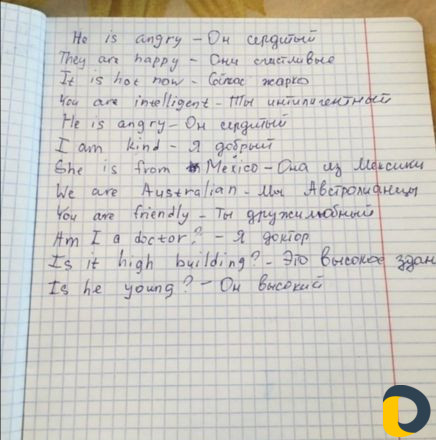 He is angry – Он сердитый
They are happy – Они счастливые
It is hot now – Сейчас жарко
You are intelligent – Ты интилигентный
He is angry – Он сердитый
I am kind – Я добрый
She is from Mexico – Она из Мексики
We are Australian – Мы Австролианецы
You are friendly – Ты дружилюбный
Am I a doctor? – Я доктор
Is it high building? – Это высокое здан
Is he young? – Он высокий